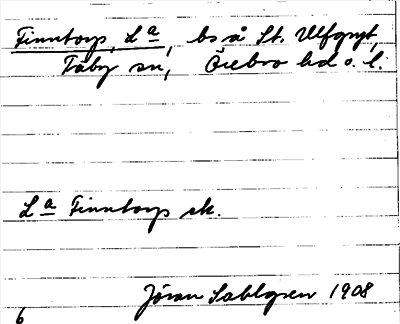 Finntorp, La, bs å St. Ulfgryt,
Täby sn, Örebro hd o. l.
La Finntorp sk.
Jöran Sahlgren 1908
6